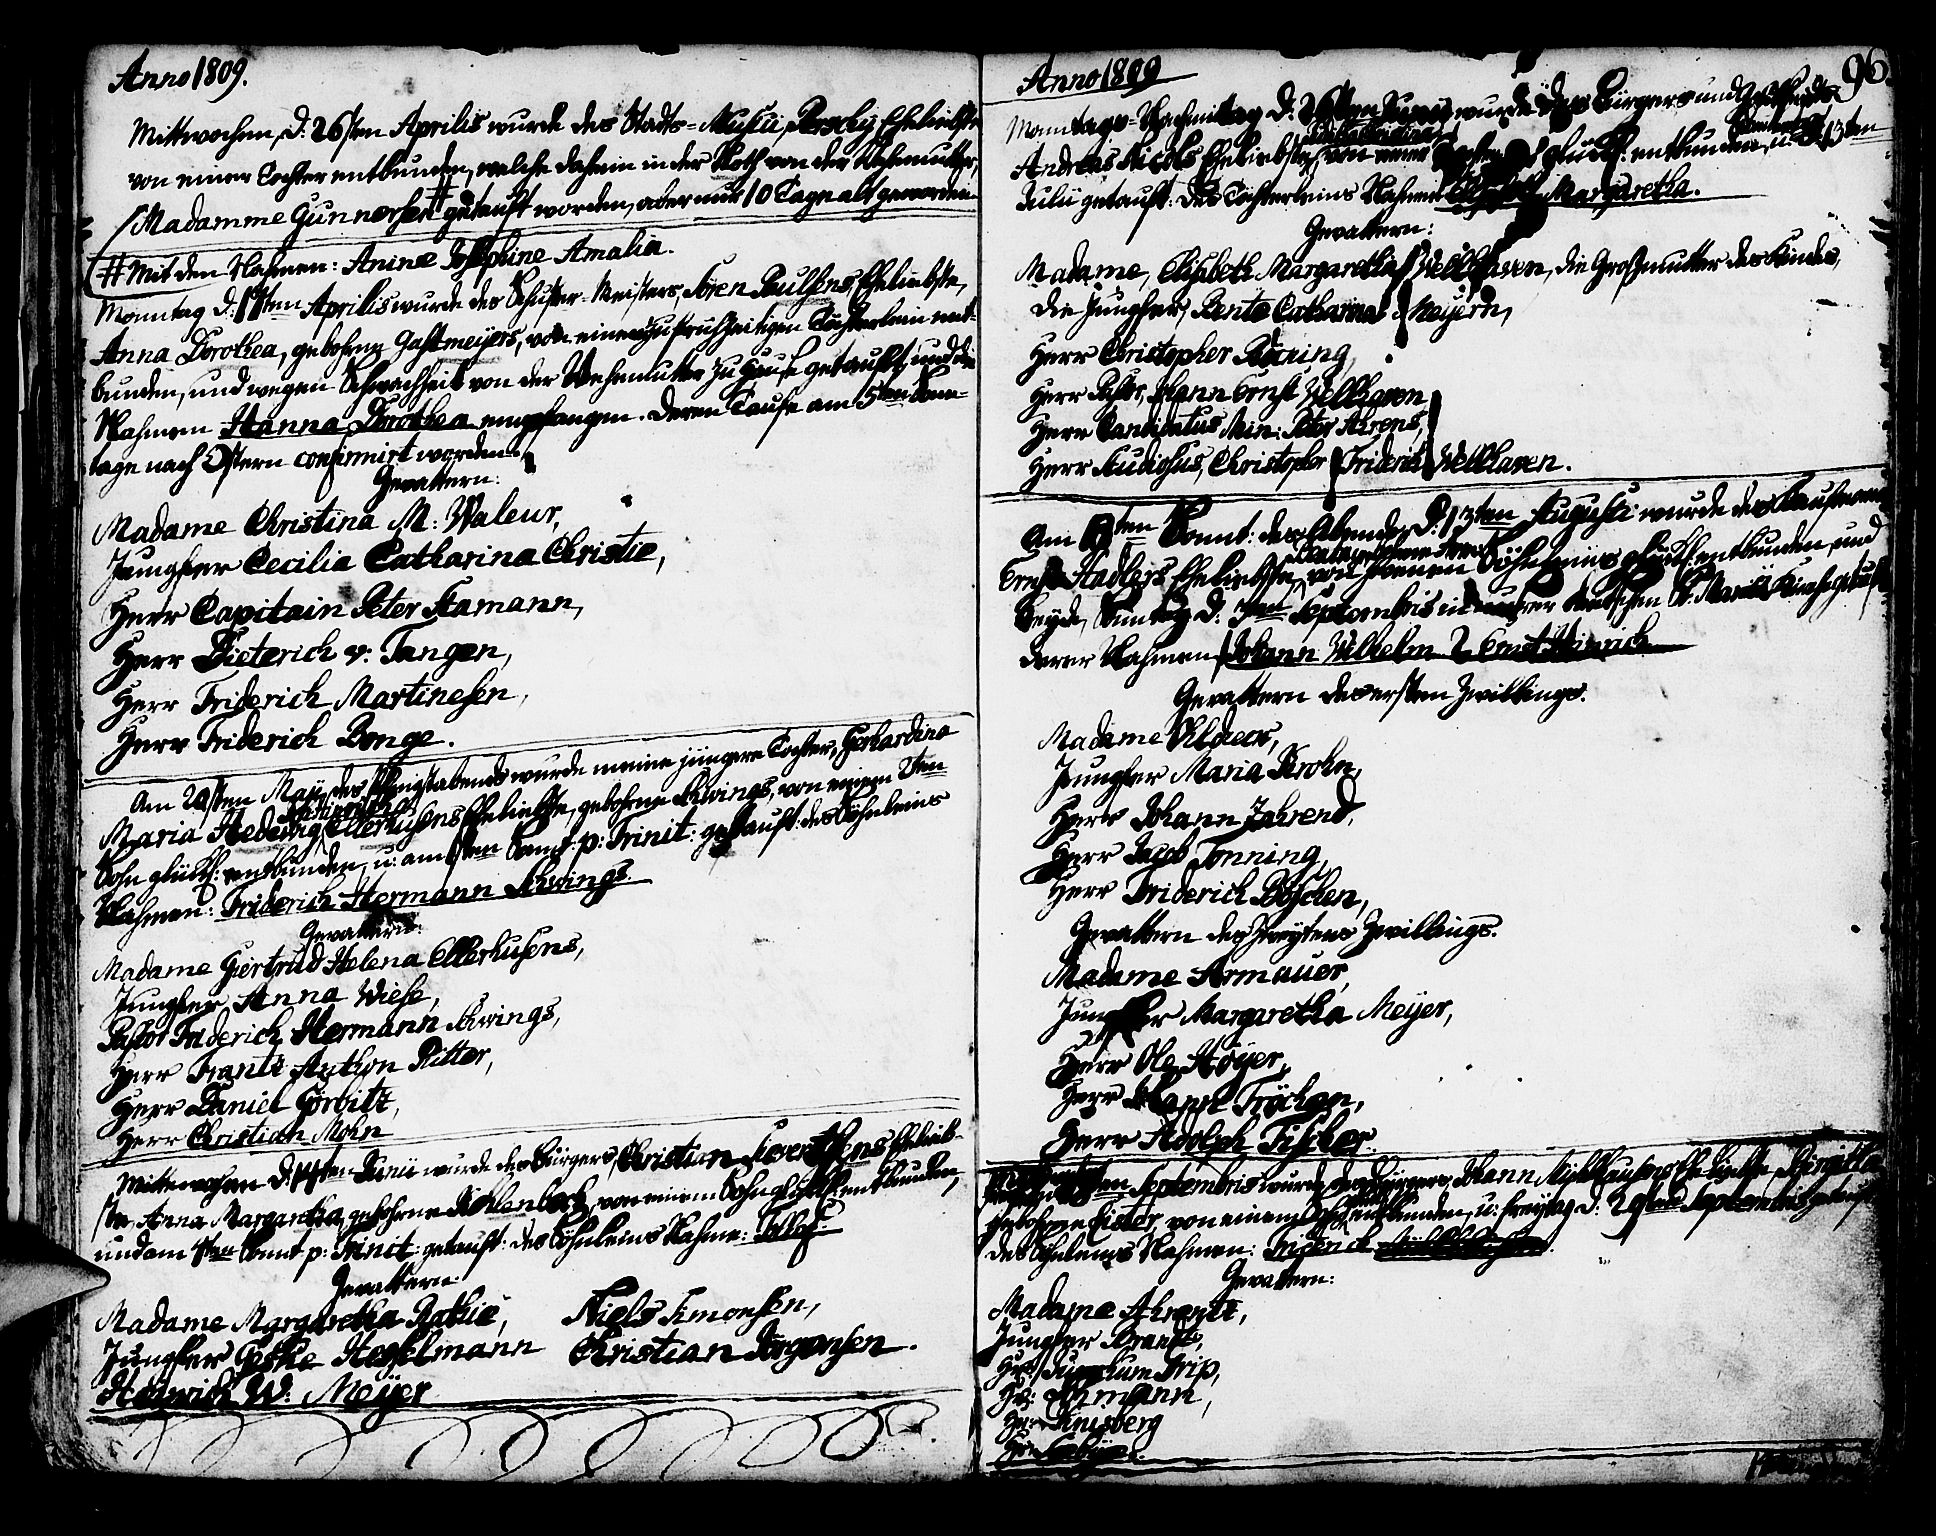 Anno 1809.
Mittwochen, d: 26sten Aprilis wurde des Stadts-Musici, Perschy Eheliebste
von einer Tochter entbunden, welche daheim in der Noth von der Wehemutter,
Madamme Gunnersen # getauft worden, aber nur 10 Tage alt geworden
# Mit den Nahmen: Aninæ Josephine Amalia.
Monntag d: 17ten Aprilis wurde des Schuster-Meisters, Sören Paulsens, Eheliebste,
Anna Dorothea, gebohrne Gastmeyers, von einem zu frühzeitigen Töchterlein ent-
bunden, und wegen Schwachheit von der Wehemutter zu Hause getauft, und die
Nahmen Hanna Dorothea empfangen. Deren Taufe am 5ten Sonn-
tage nach Ostern confirmirt worden.
Gevattern:
Madame Christina M: Waleur,
Jungfer Cecilia Catharina Christie,
Herr Capitain Peter Stamann,
Herr Dieterich v: Tangen,
Herr Friderich Martinesen,
Herr Friderich Bonge.
Am 20sten May, des Pfingstabends wurde meine jüngere Tochter, Gerhardina
Maria Hedewig Ellerhusens Eheliebste, gebohrne Schwings, von einem 2ten
Sohn glückl: entbunden, u: am Sonnt p: Trinit: getauft: des Söhnleins
Nahmen: Friderich Hermann Schwings.
Gevattern:
Madame Giertrud Helena Ellerhusens,
Jungfer Anna Wiese,
Pastor Friderich Hermann Schwings,
Herr Frantz Anthon Ritter,
Herr Daniel Görbitz,
Herr Christian Mohn
Mittewochen d: 14ten Junii wurde des Bürgers, Christian Severthens Ehelieb-
ste, Anna Margaretha, gebohrne Dichlenbach, von einem Sohn glückl: entbunden,
und am 4ten Sonnt p: Trinit: getauft: des Söhnleins Nahme:
Gevattern:
Madame Margaretha Rathie, Niels Simonsen,
Jungfer Geske Hesselmann Christian Jörgensen.
Hinrich W: Meyer
96.
Anno 1809
Monntags-Nachmittag d: 26sten Junii wurde des Bürgers und
Andreas Nicols Eheliebste, von einer Tochter glückl: entbunden, u: d: 13ten
Julii getauft: des Töchterleins Nahmen Elisabeth Margaretha.
Gevattern:
Madame, Elisabeth Margaretha Wellhaven, die Großmutter des Kindes,
die Jungfer, Bente Catharina Meyern,
Herr Christopher Böcking,
Herr Pastor, Johann Ernst Wellhaven
Herr Candidatus Min: Peter Ahrens,
Herr Studiosus, Christopher Friderich Wellhaven.
Am Sonnt: des Abends d: 13ten Augusti wurde des Kaufmann
Ernst Stadlers Eheliebste, von zweenen Söhnleins glückl: entbunden und
beyde, Sonntag d: 3ten Septembris in unser teutschen St. Mariä Kirche getauft
derer Nahmen, Johann Wilhelm & Ernst Hinrich
Gevattern des ersten Zwillings.
Madame
Jungfer Maria Krohn,
Herr Johann Jahrend,
Herr Jacob Tonning,
Herr Friderich Böschen,
Gevattern des Zweytens Zwillings.
Madame Armauer,
Jungfer Margaretha Meyer,
Herr Ole Höyer,
Herr Johann Fröchen,
Herr Adolph Fischer.
Septembris wurde des Bürgers, Johann Eheliebste, Birgitta
gebohrne von einem entbunden, u: Freytag d: 29sten Septembris getauft
des Söhnleins Nahmen: Friderich
Gevattern:
Madame Ahrentz,
Jungfer Brandt,
Hr: Grip,
Hr: Ohmann,
Hr: Kinsberg
Hr: